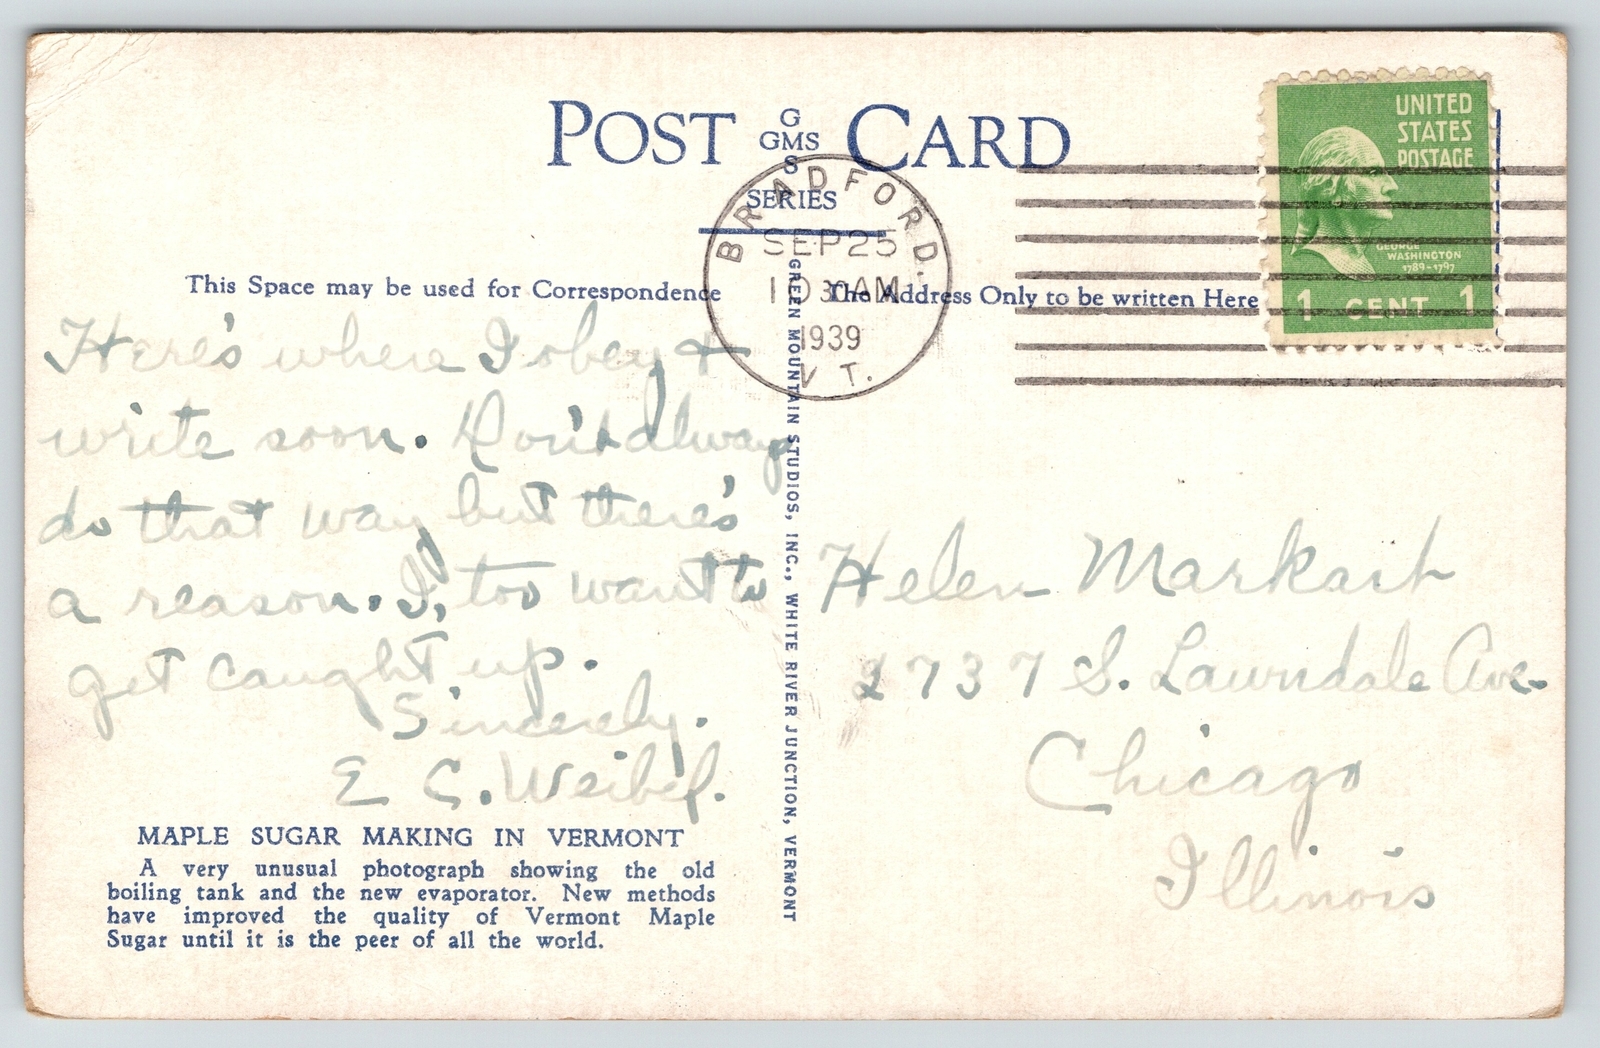 POST CARD
G
GMS
S
SERIES
UNITED
STATES
POSTAGE
GEORGE
WASHINGTON
1789-1797
1 CENT 1
BRADFORD.
SEP 25
10 30 AM
1939
VT.
This Space may be used for Correspondence
The Address Only to be written Here
Here's where I obey &
write soon. Don't always
do that way but there's
a reason. I, too want to
get caught up.
Sincerely.
E. C. Weibel.
MAPLE SUGAR MAKING IN VERMONT
A very unusual photograph showing the old
boiling tank and the new evaporator. New methods
have improved the quality of Vermont Maple
Sugar until it is the peer of all the world.
GREEN MOUNTAIN STUDIOS, INC., WHITE RIVER JUNCTION, VERMONT
Helen
2737 S. Lawndale Ave.
Chicago
Illinois